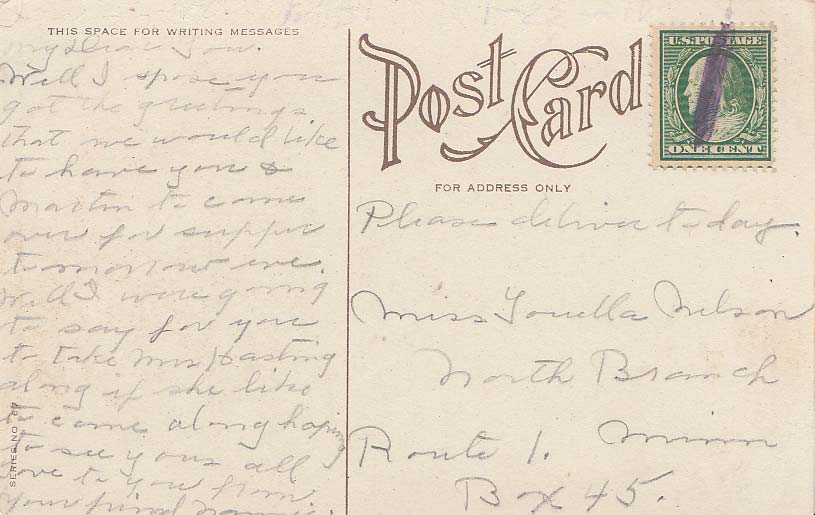 THIS SPACE FOR WRITING MESSAGES
My Dear Lou.
Well I spose you
got the greetings
that we would like
to have you &
Martin to come
over for supper
tomorrow eve.
Well I were going
to say for you
to take Mrs Hasting
along if she like
to come along hoping
to see yous all
love to you from
your friend
SERIES NO. 67
Post Card
FOR ADDRESS ONLY
U.S. POSTAGE
ONE CENT
Please deliver today.
Miss Louella Nelson
North Branch
Route 1. Minn
Box 45.